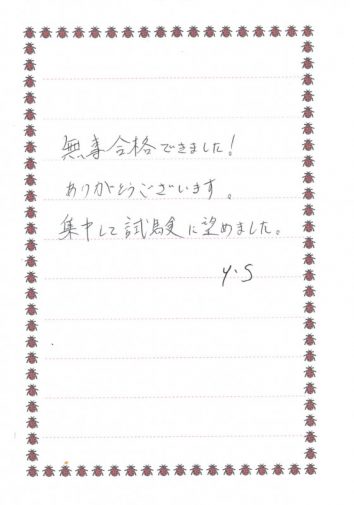 無事合格できました!
ありがとうございます。
集中して試験に望めました。
y.S